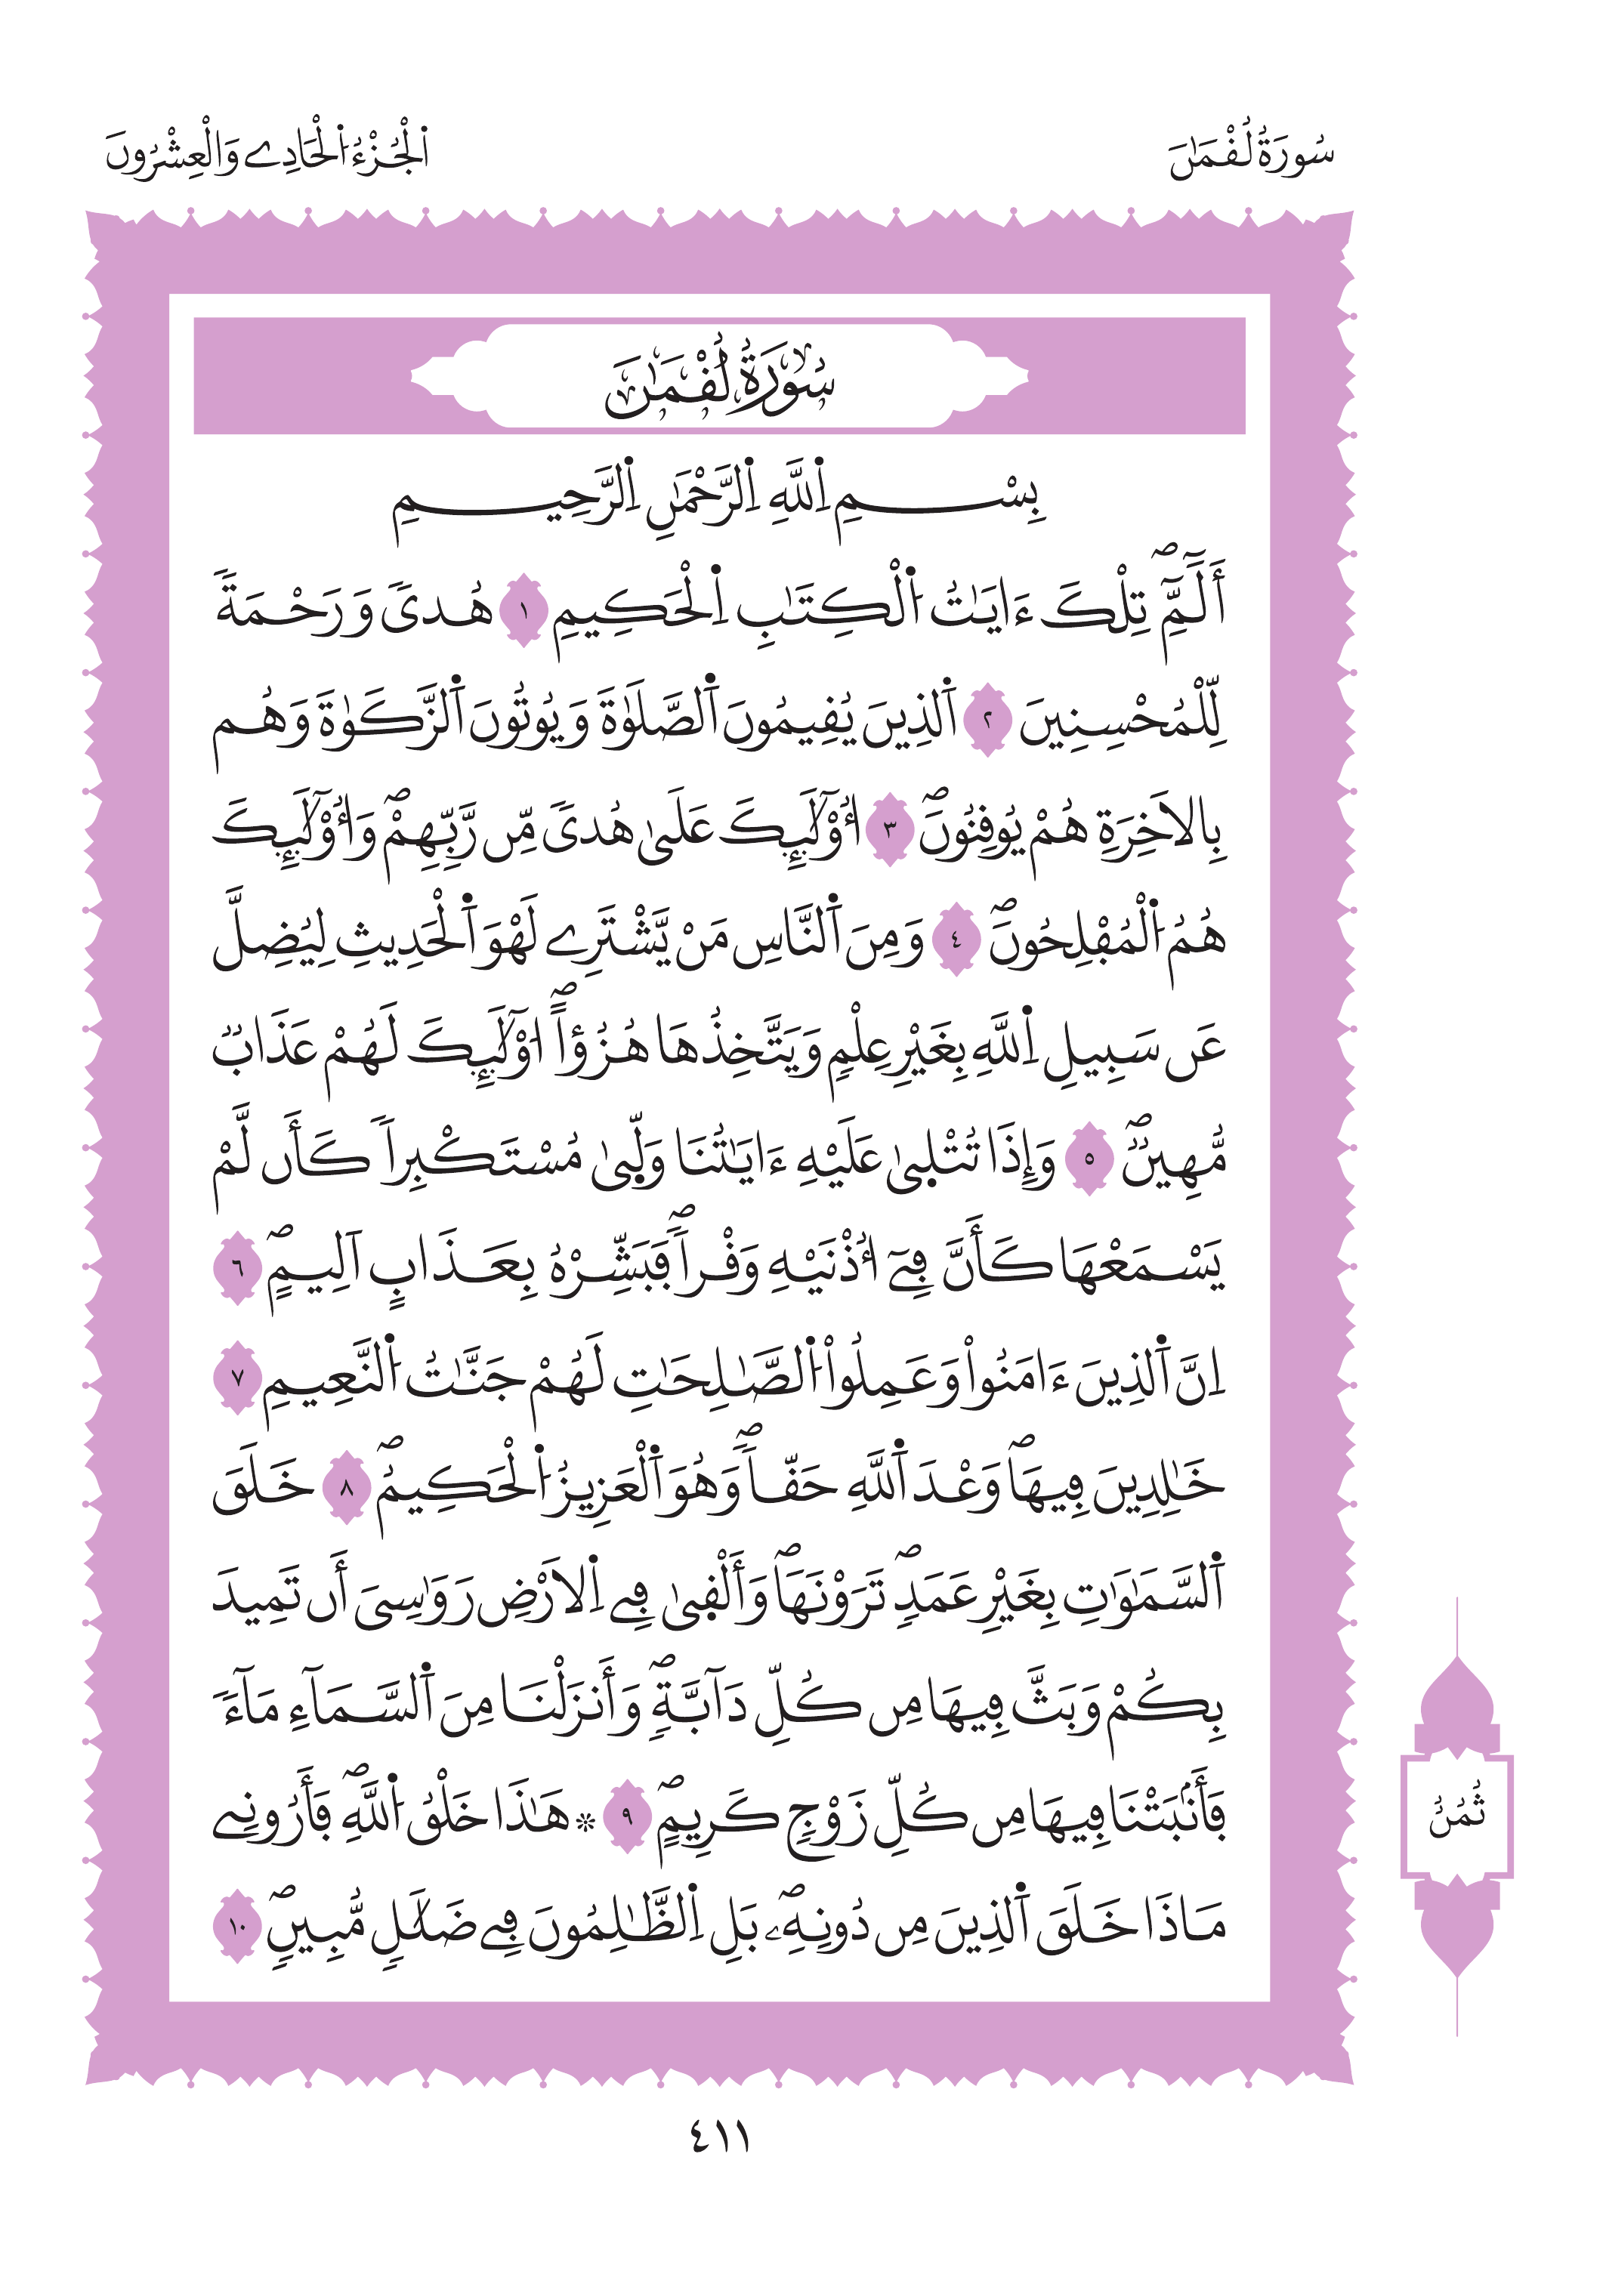 سُورَةُ لُقْمَٰنَ
اَ۬لْجُزْءُ اُ۬لْحَادِے وَالْعِشْرُونَ
سُورَةُ لُقْمَٰنَ
بِسْمِ اِ۬للَّهِ اِ۬لرَّحْمَٰنِ اِ۬لرَّحِيمِ
أَلَٓمِّٓۖ تِلْكَ ءَايَٰتُ اُ۬لْكِتَٰبِ اِ۬لْحَكِيمِ ١ هُدىٗ وَرَحْمَةٗ
لِّلْمُحْسِنِينَ ٢ اَ۬لذِينَ يُقِيمُونَ اَ۬لصَّلَوٰةَ وَيُوتُونَ اَ۬لزَّكَوٰةَ وَهُم
بِالَاخِرَةِ هُمْ يُوقِنُونَۖ ٣ أُوْلَٰٓئِكَ عَلَىٰ هُدىٗ مِّن رَّبِّهِمْۖ وَأُوْلَٰٓئِكَ
هُمُ اُ۬لْمُفْلِحُونَۖ ٤ وَمِنَ اَ۬لنَّاسِ مَنْ يَّشْتَرِے لَهْوَ اَ۬لْحَدِيثِ لِيُضِلَّ
عَن سَبِيلِ اِ۬للَّهِ بِغَيْرِ عِلْمٖ وَيَتَّخِذُهَا هُزُؤاًۖ ا۟وْلَٰٓئِكَ لَهُمْ عَذَابٞ
مُّهِينٞۖ ٥ وَإِذَا تُتْل۪ىٰ عَلَيْهِ ءَايَٰتُنَا وَلّ۪ىٰ مُسْتَكْبِراٗ كَأَن لَّمْ
يَسْمَعْهَا كَأَنَّ فِےٓ أُذْنَيْهِ وَقْراٗۖ فَبَشِّرْهُ بِعَذَابٍ اَلِيمٍۖ ٦
اِنَّ اَ۬لذِينَ ءَامَنُواْ وَعَمِلُواْ اُ۬لصَّٰلِحَٰتِ لَهُمْ جَنَّٰتُ اُ۬لنَّعِيمِ ٧
خَٰلِدِينَ فِيهَاۖ وَعْدَ اَ۬للَّهِ حَقّاٗۖ وَهُوَ اَ۬لْعَزِيزُ اُ۬لْحَكِيمُۖ ٨ خَلَقَ
اَ۬لسَّمَٰوَٰتِ بِغَيْرِ عَمَدٖۖ تَرَوْنَهَاۖ وَأَلْق۪ىٰ فِے اِ۬لَارْضِ رَوَٰسِىَ أَن تَمِيدَ
بِكُمْ وَبَثَّ فِيهَا مِن كُلِّ دَآبَّةٖۖ وَأَنزَلْنَا مِنَ اَ۬لسَّمَآءِ مَآءٗ
فَأَنۢبَتْنَا فِيهَا مِن كُلِّ زَوْجٖ كَرِيمٍۖ ٩ ۞ هَٰذَا خَلْقُ اُ۬للَّهِۖ فَأَرُونِے
مَاذَا خَلَقَ اَ۬لذِينَ مِن دُونِهِۦۖ بَلِ اِ۬لظَّٰلِمُونَ فِے ضَلَٰلٖ مُّبِينٖۖ ١٠
ثُمُنُ
٤١١